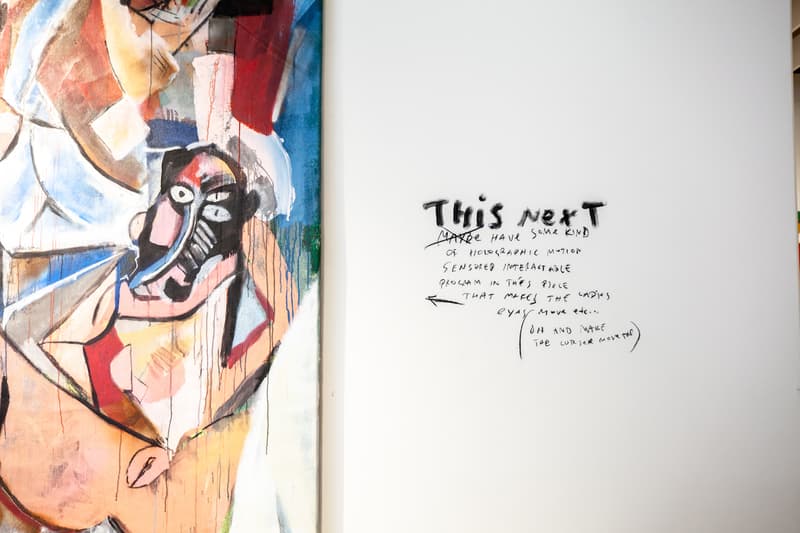 THiS NexT
MAYBE HAVE SOME KIND
OF HOLOGRAPHIC MOTION
SENSORED INTERACTABLE
PROGRAM IN THIS PIECE
THAT MAKES THE LADIES
EYES MOVE ETC...
(OH AND MAKE
THE CURSOR MOVE TOO)